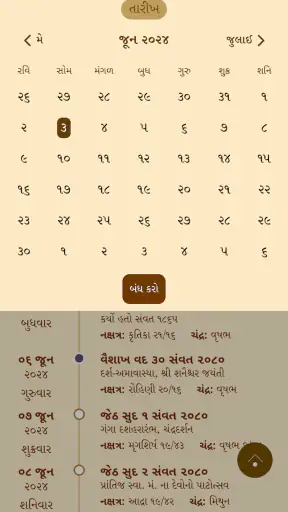 તારીખ
મે
જૂન ૨૦૨૪
જુલાઈ
રવિ સોમ મંગળ બુધ ગુરુ શુક્ર શનિ
૨૬ ૨૭ ૨૮ ૨૯ ૩૦ ૩૧ ૧
૨ ૩ ૪ ૫ ૬ ૭ ૮
૯ ૧૦ ૧૧ ૧૨ ૧૩ ૧૪ ૧૫
૧૬ ૧૭ ૧૮ ૧૯ ૨૦ ૨૧ ૨૨
૨૩ ૨૪ ૨૫ ૨૬ ૨૭ ૨૮ ૨૯
૩૦ ૧ ૨ ૩ ૪ ૫ ૬
બંધ કરો
કર્યો હતો સંવત ૧૮૬૫
બુધવાર
નક્ષત્ર: કૃતિકા ૨૧/૧૬ ચંદ્ર: વૃષભ
૦૬ જૂન
૨૦૨૪
ગુરુવાર
વૈશાખ વદ ૩૦ સંવત ૨૦૮૦
દર્શ-અમાવાસ્યા, શ્રી શનૈશ્ચર જયંતી
નક્ષત્ર: રોહિણી ૨૦/૧૬ ચંદ્ર: વૃષભ
૦૭ જૂન
૨૦૨૪
શુક્રવાર
જેઠ સુદ ૧ સંવત ૨૦૮૦
ગંગા દશહરારંભ, ચંદ્રદર્શન
નક્ષત્ર: મૃગશિર્ષ ૧૯/૪૩ ચંદ્ર: વૃષભ
૦૮ જૂન
૨૦૨૪
શનિવાર
જેઠ સુદ ૨ સંવત ૨૦૮૦
પ્રાંતિજ સ્વા. મં. ના દેવોનો પાટોત્સવ
નક્ષત્ર: આદ્રા ૧૯/૪૨ ચંદ્ર: મિથુન